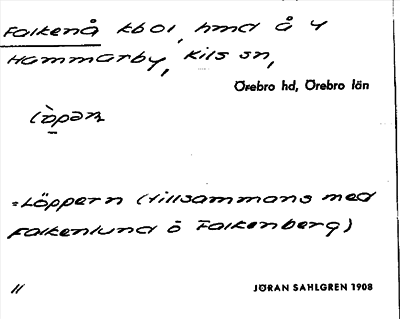 Falkenå tbol, hmd å 4
Hammarby, Kils sn,
Örebro hd, Örebro län
=Löppern (tillsammans med
Falkenlund o Falkenberg)
11
JÖRAN SAHLGREN 1908